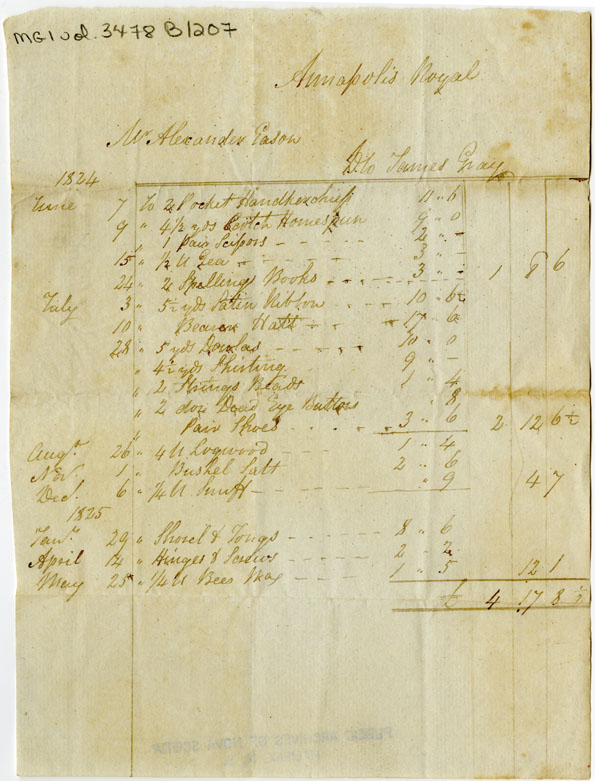 MG1 vol. 3478 B1207
Annapolis Royal
Mr Alexander Eason
Dto James Gray
1824
June 7 To 2 Pocket Handkerchiefs 11 " 6
9 " 4 1/2 yds Scotch Homespun 9 " 0
" 1 Pair Scissors 2 " -
15 " 1/2 ll Tea 3 " -
24 " 2 Spellings Books 3 " - 1 8 6
July 3 " 5 1/2 yds Satin Ribbon 10 " 6 1/2
10 " Beaver Hatt 17 " 6
28 " 5 yds Dowlas 10 " 0
" 4 1/2 yds Shirting 9 " -
" 2 Strings Beads 1 " 4
" 2 doz Dead Eye Buttons " 8
Pair Shoes 3 " 6 2 12 6 1/2
Augt. 26 " 4 ll Logwood 1 " 4
Nov 1 " Bushel Salt 2 " 6
Dec. 6 " 1/4 ll Snuff " 9 4 7
1825
Jany. 29 " Shovel & Tongs 8 " 6
April 14 " Hinges & Screws 2 " 2
May 25 " 3/4 ll Bees Wax 1 " 5 12 1
£ 4 17 8 1/2
PUBLIC ARCHIVES OF NOVA SCOTIA